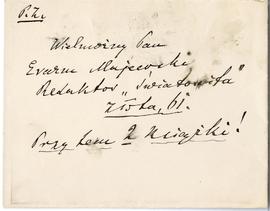 P. Z.
Wielmożny Pan
Erazm Majewski
Redaktor „Światowita”
Złota, 61.
Przytem 2 książki!